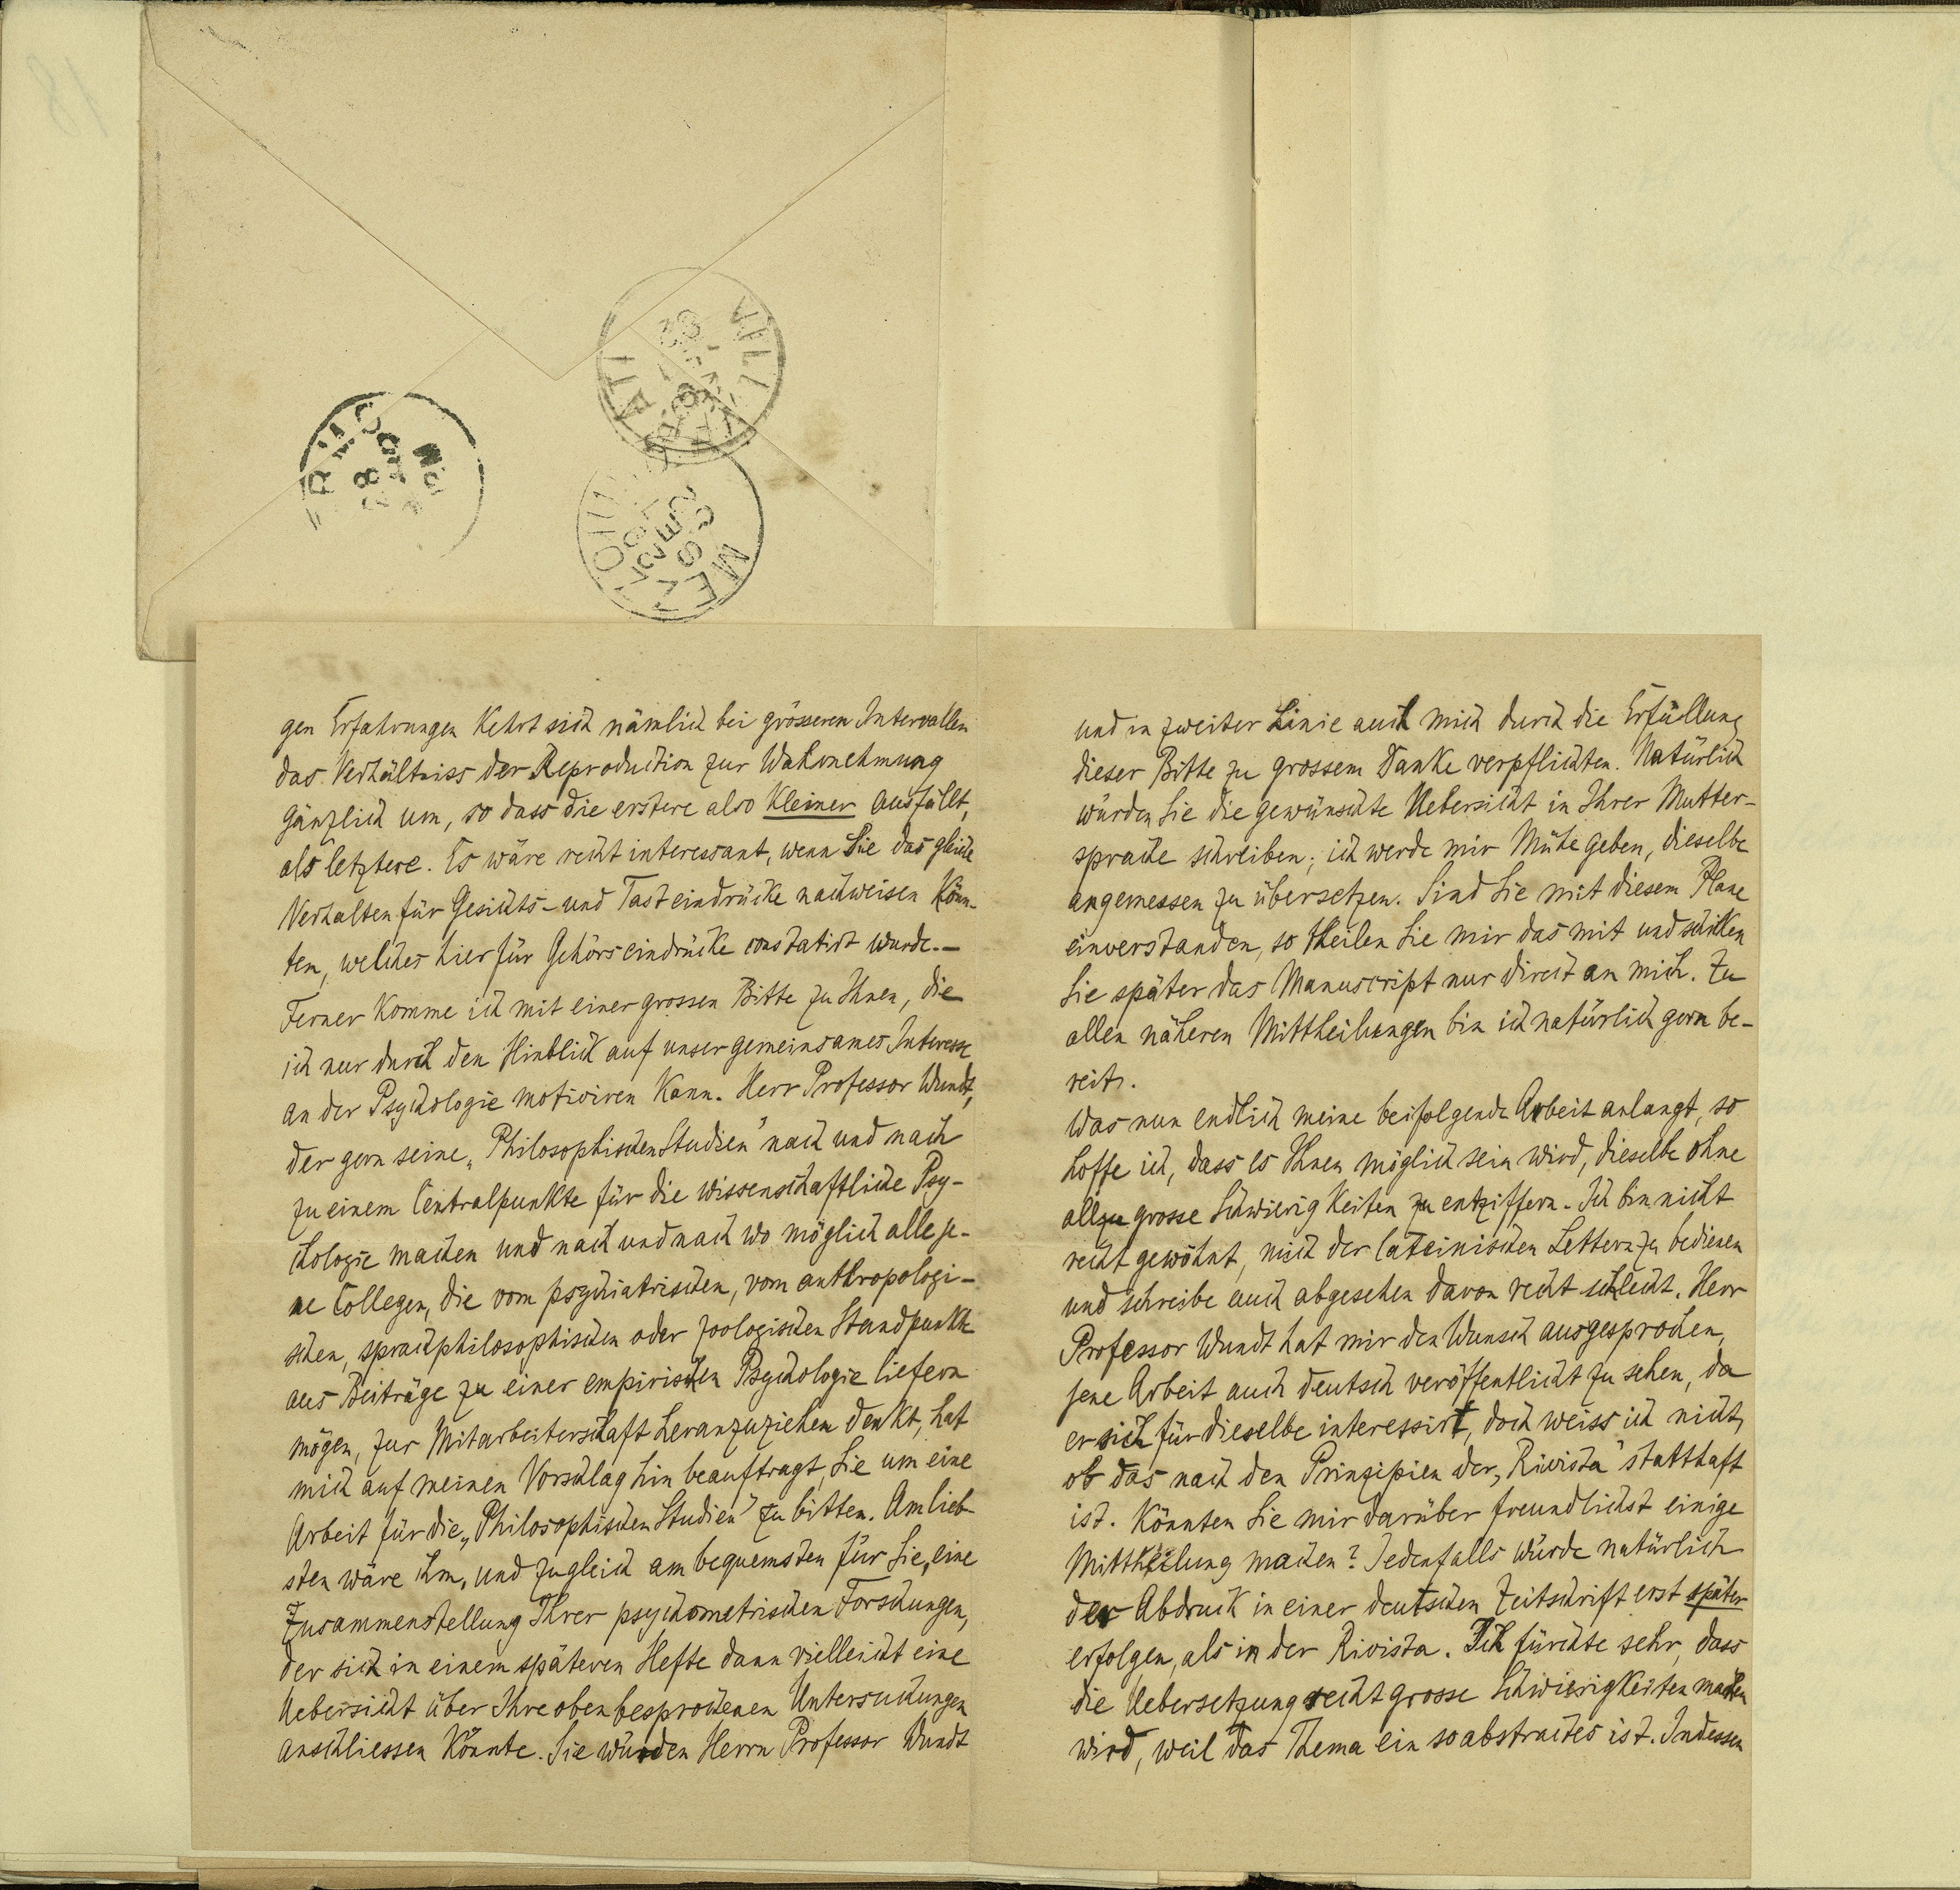 gen Erfahrungen kehrt sich nämlich bei grösseren Intervallen
das Verhältniss der Reproduction zur Wahrnehmung
gänzlich um, so dass die erstere also kleiner ausfällt,
als letztere. Es wäre recht interessant, wenn Sie das gleiche
Verhalten für Gesichts- und Tasteindrücke nachweisen könn-
ten, welches hier für Gehörseindrücke constatirt wurde.—
Ferner komme ich mit einer grossen Bitte zu Ihnen, die
ich nur durch den Hinblick auf unser gemeinsames Interesse
an der Psychologie motiviren kann. Herr Professor Wundt,
der gern seine „Philosophischen Studien" nach und nach
zu einem Centralpunkte für die wissenschaftliche Psy-
chologie machen und nach und nach wo möglich alle je-
ne Collegen, die vom psychiatrischen, vom anthropologi-
schen, sprachphilosophischen oder zoologischen Standpunkte
aus Beiträge zu einer empirischen Psychologie liefern
mögen, zur Mitarbeiterschaft heranzuziehen denkt, hat
mich auf meinen Vorschlag hin beauftragt, Sie um eine
Arbeit für die „Philosophischen Studien" zu bitten. Am lieb-
sten wäre ihm, und zugleich am bequemsten für Sie, eine
Zusammenstellung Ihrer psychometrischen Forschungen,
der sich in einem späteren Hefte dann vielleicht eine
Uebersicht über Ihre oben besprochenen Untersuchungen
anschliessen könnte. Sie würden Herrn Professor Wundt
und in zweiter Linie auch mich durch die Erfüllung
dieser Bitte zu grossem Danke verpflichten. Natürlich
würden Sie die gewünschte Uebersicht in Ihrer Mutter-
sprache schreiben; ich werde mir Mühe geben, dieselbe
angemessen zu übersetzen. Sind Sie mit diesem Plane
einverstanden, so theilen Sie mir das mit und schicken
Sie später das Manuscript nur direct an mich. Zu
allen näheren Mittheilungen bin ich natürlich gern be-
reit.
Was nun endlich meine beifolgende Arbeit anlangt, so
hoffe ich, dass es Ihnen möglich sein wird, dieselbe ohne
allzu grosse Schwierigkeiten zu entziffern. Ich bin nicht
recht gewöhnt, mich der lateinischen Lettern zu bedienen
und schreibe auch abgesehen davon recht schlecht. Herr
Professor Wundt hat mir den Wunsch ausgesprochen,
jene Arbeit auch deutsch veröffentlicht zu sehen, da
er sich für dieselbe interessirt, doch weiss ich nicht,
ob das nach den Prinzipien der „Rivista" statthaft
ist. Könnten Sie mir darüber freundlichst einige
Mittheilung machen? Jedenfalls würde natürlich
der Abdruck in einer deutschen Zeitschrift erst später
erfolgen, als in der Rivista. Ich fürchte sehr, dass
die Uebersetzung recht grosse Schwierigkeiten machen
wird, weil das Thema ein so abstractes ist. Indessen